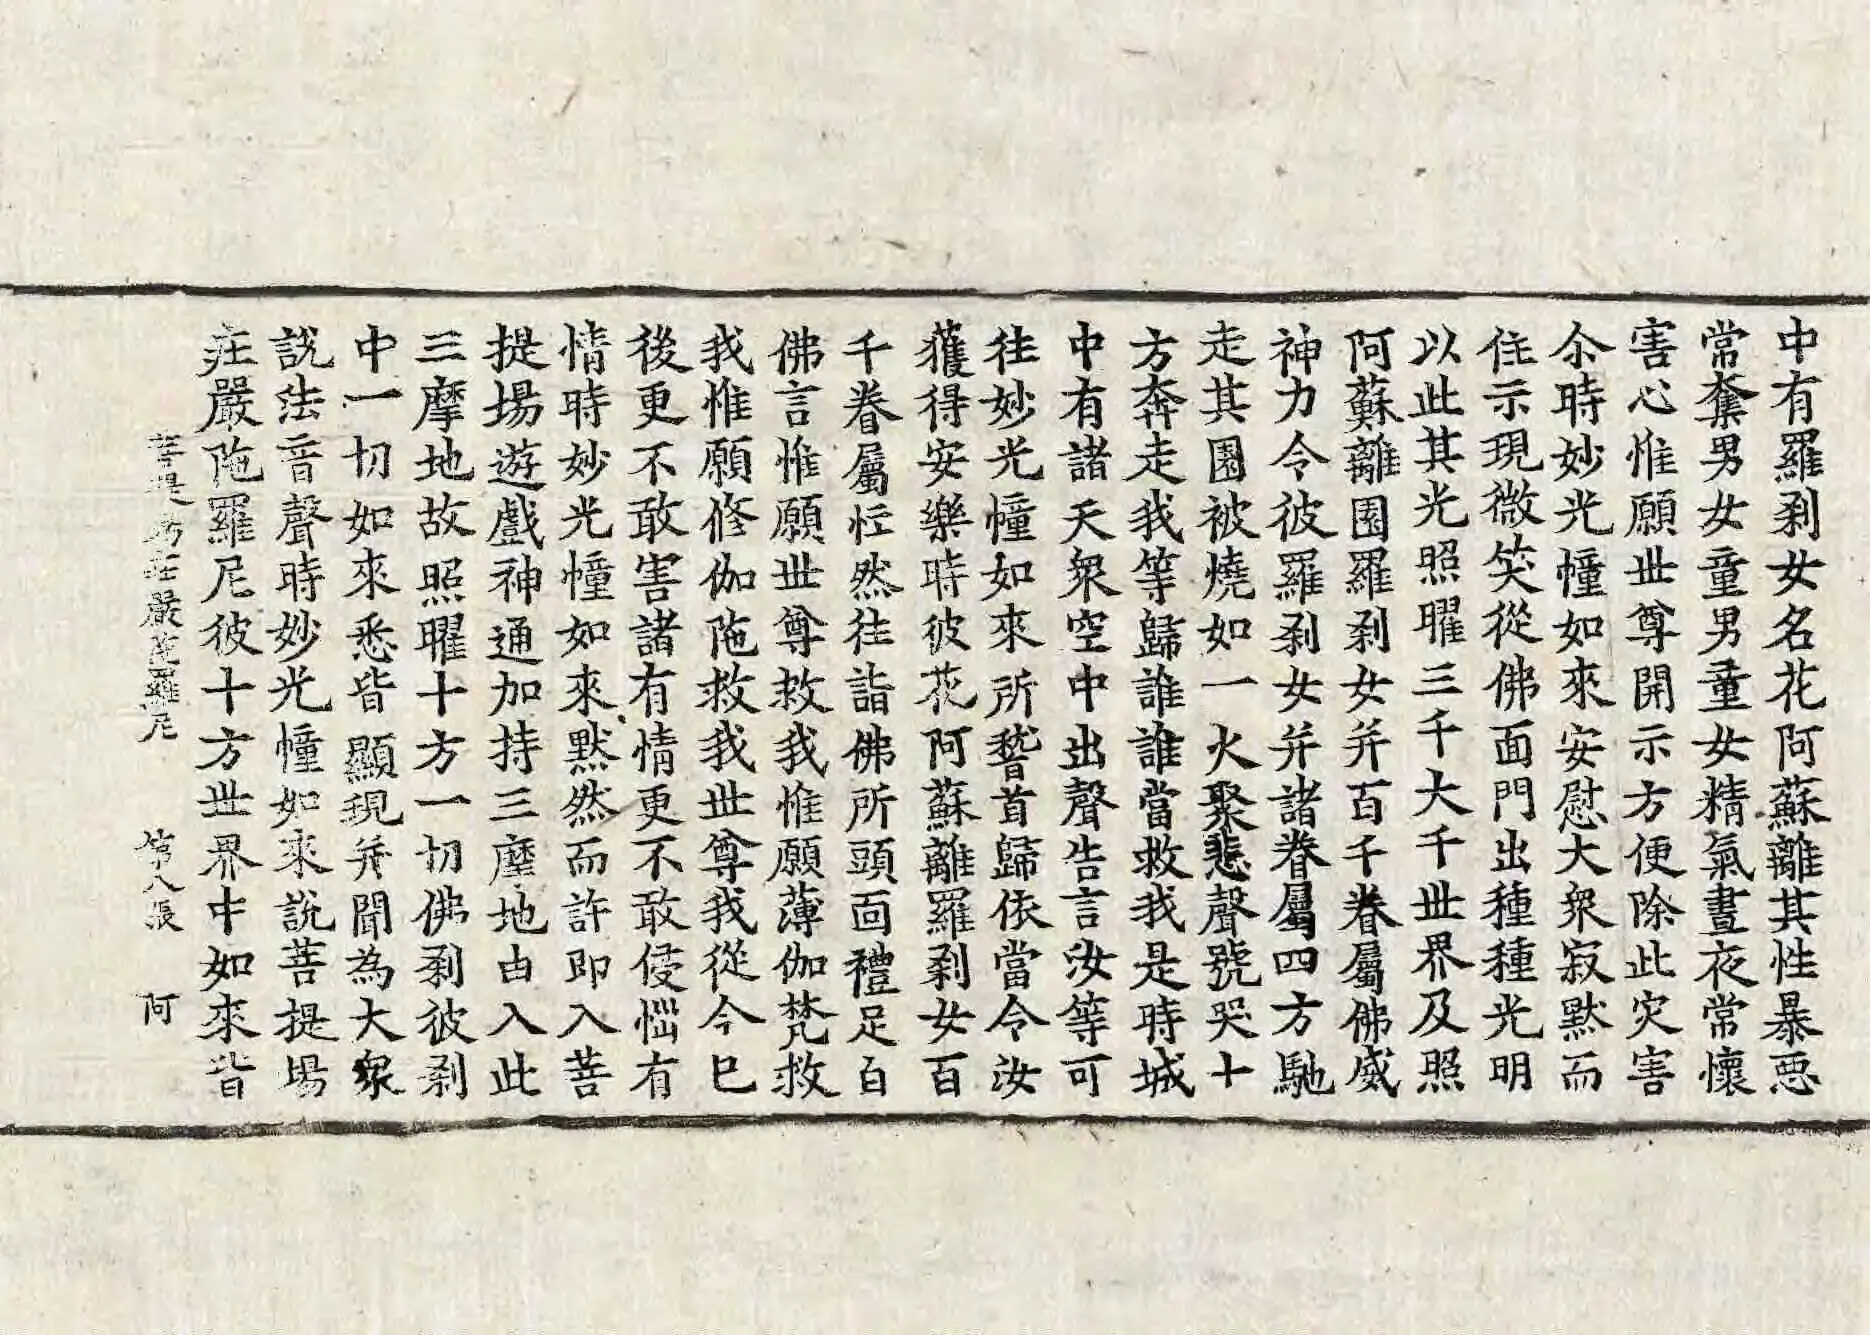 中有羅剎女名花阿蘇離其性暴惡
常奪男女童男童女精氣晝夜常懷
害心惟願世尊開示方便除此灾害
尒時妙光幢如來安慰大衆寂默而
住示現微笑從佛面門出種種光明
以此其光照曜三千大千世界及照
阿蘇離園羅剎女并百千眷屬佛威
神力令彼羅剎女并諸眷屬四方馳
走其園被燒如一火聚悲聲號哭十
方奔走我等歸誰誰當救我是時城
中有諸天衆空中出聲告言汝等可
往妙光幢如來所稽首歸依當令汝
獲得安樂時彼花阿蘇離羅剎女百
千眷屬恇然往詣佛所頭面禮足白
佛言惟願世尊救我惟願薄伽梵救
我惟願修伽陁救我世尊我從今已
後更不敢害諸有情更不敢侵惱有
情時妙光幢如來默然而許即入菩
提場遊戲神通加持三摩地由入此
三摩地故照曜十方一切佛剎彼剎
中一切如來悉皆顯現并聞為大衆
說法音聲時妙光幢如來說菩提場
莊嚴陁羅尼彼十方世界中如來皆
菩提場莊嚴陁羅尼 第八張 阿